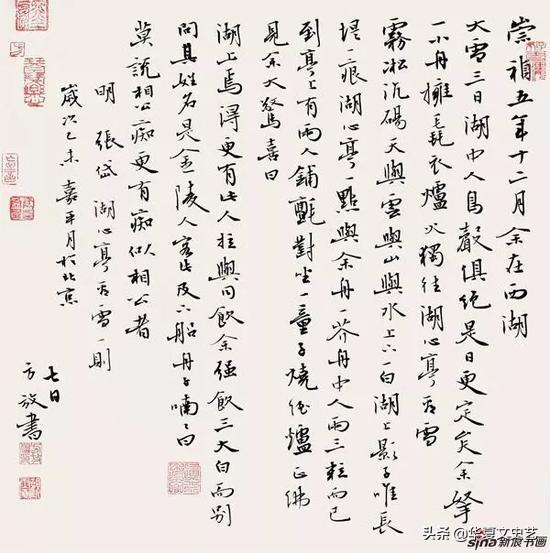 崇禎五年十二月余在西湖
大雪三日湖中人鳥聲俱絕是日更定矣余拏
一小舟擁毳衣爐火獨往湖心亭看雪
霧凇沆碭天與雲與山與水上下一白湖上影子唯長
堤一痕湖心亭一點與余舟一芥舟中人兩三粒而已
到亭上有兩人鋪氈對坐一童子燒酒爐正沸
見余大驚喜曰
湖上焉得更有此人拉與同飲余強飲三大白而別
問其姓名是金陵人客此及下船舟子喃喃曰
莫說相公痴更有痴似相公者
明 張岱 湖心亭看雪一則
歲次乙未嘉平月於北京
七日
方放書
头条 @华夏文史艺
sina新浪书画